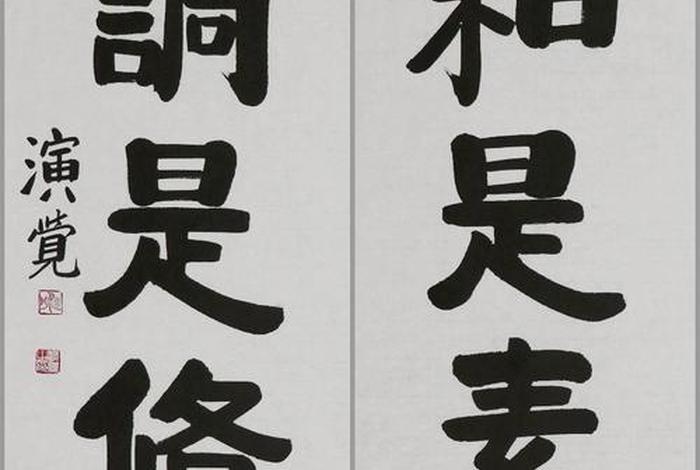 和是素
調是修
演覺